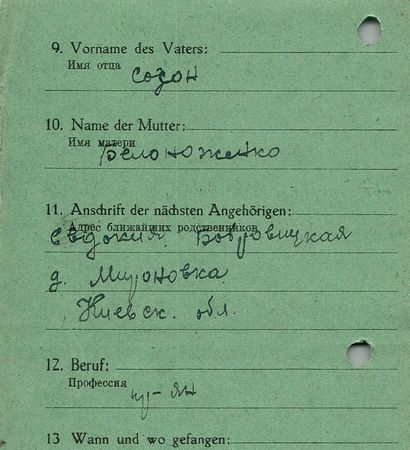 9. Vorname des Vaters:
Имя отца
созон
10. Name der Mutter:
Имя матери
Белоноженко
11. Anschrift der nächsten Angehörigen:
Адрес ближайших родственников
Евдокия Бобровицкая
д. Мироновка
Киевск. обл.
12. Beruf:
Профессия
кр-ян
13 Wann und wo gefangen: